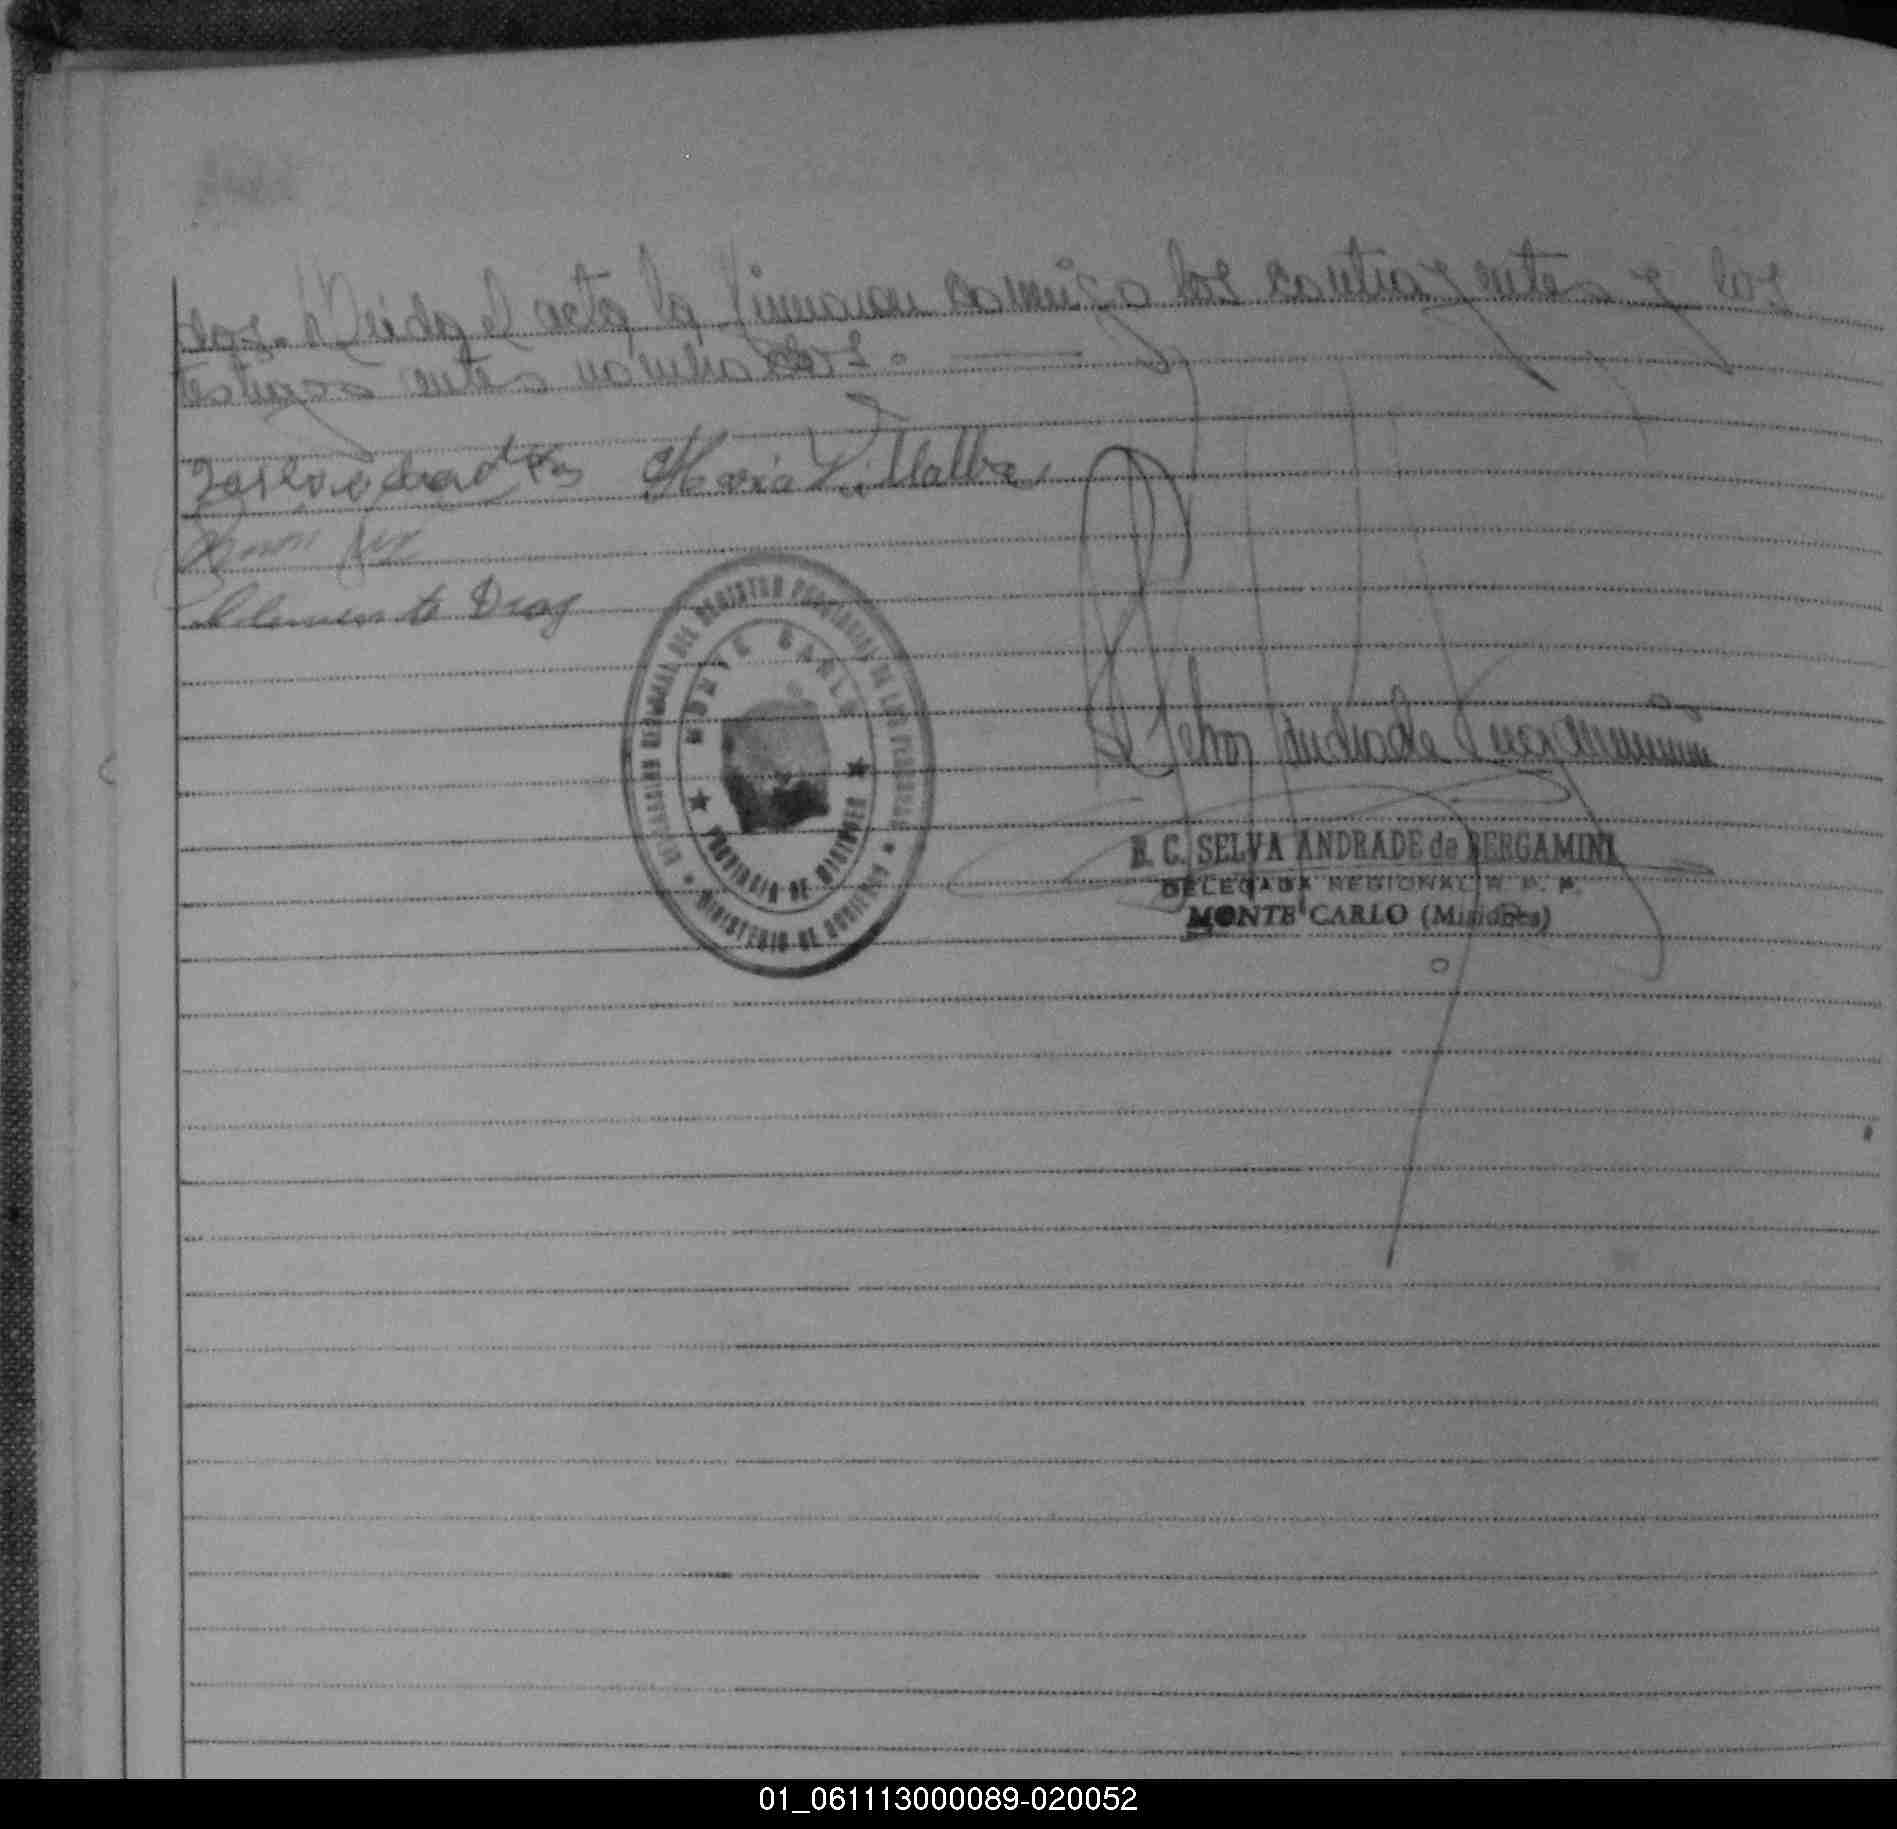 dos. Leída el acta la firman conmigo los contrayentes y los
testigos ente nombrados. 
María Villalba
Clemente Diaz
DELEGACION REGIONAL DEL REGISTRO PROVINCIAL DE LAS PERSONAS
MONTE CARLO
PROVINCIA DE MISIONES
MINISTERIO DE GOBIERNO
Selva Andrade Bergamini
B. C. SELVA ANDRADE de BERGAMINI
DELEGADA REGIONAL R. P. P.
MONTE CARLO (Misiones)
01_061113000089-020052